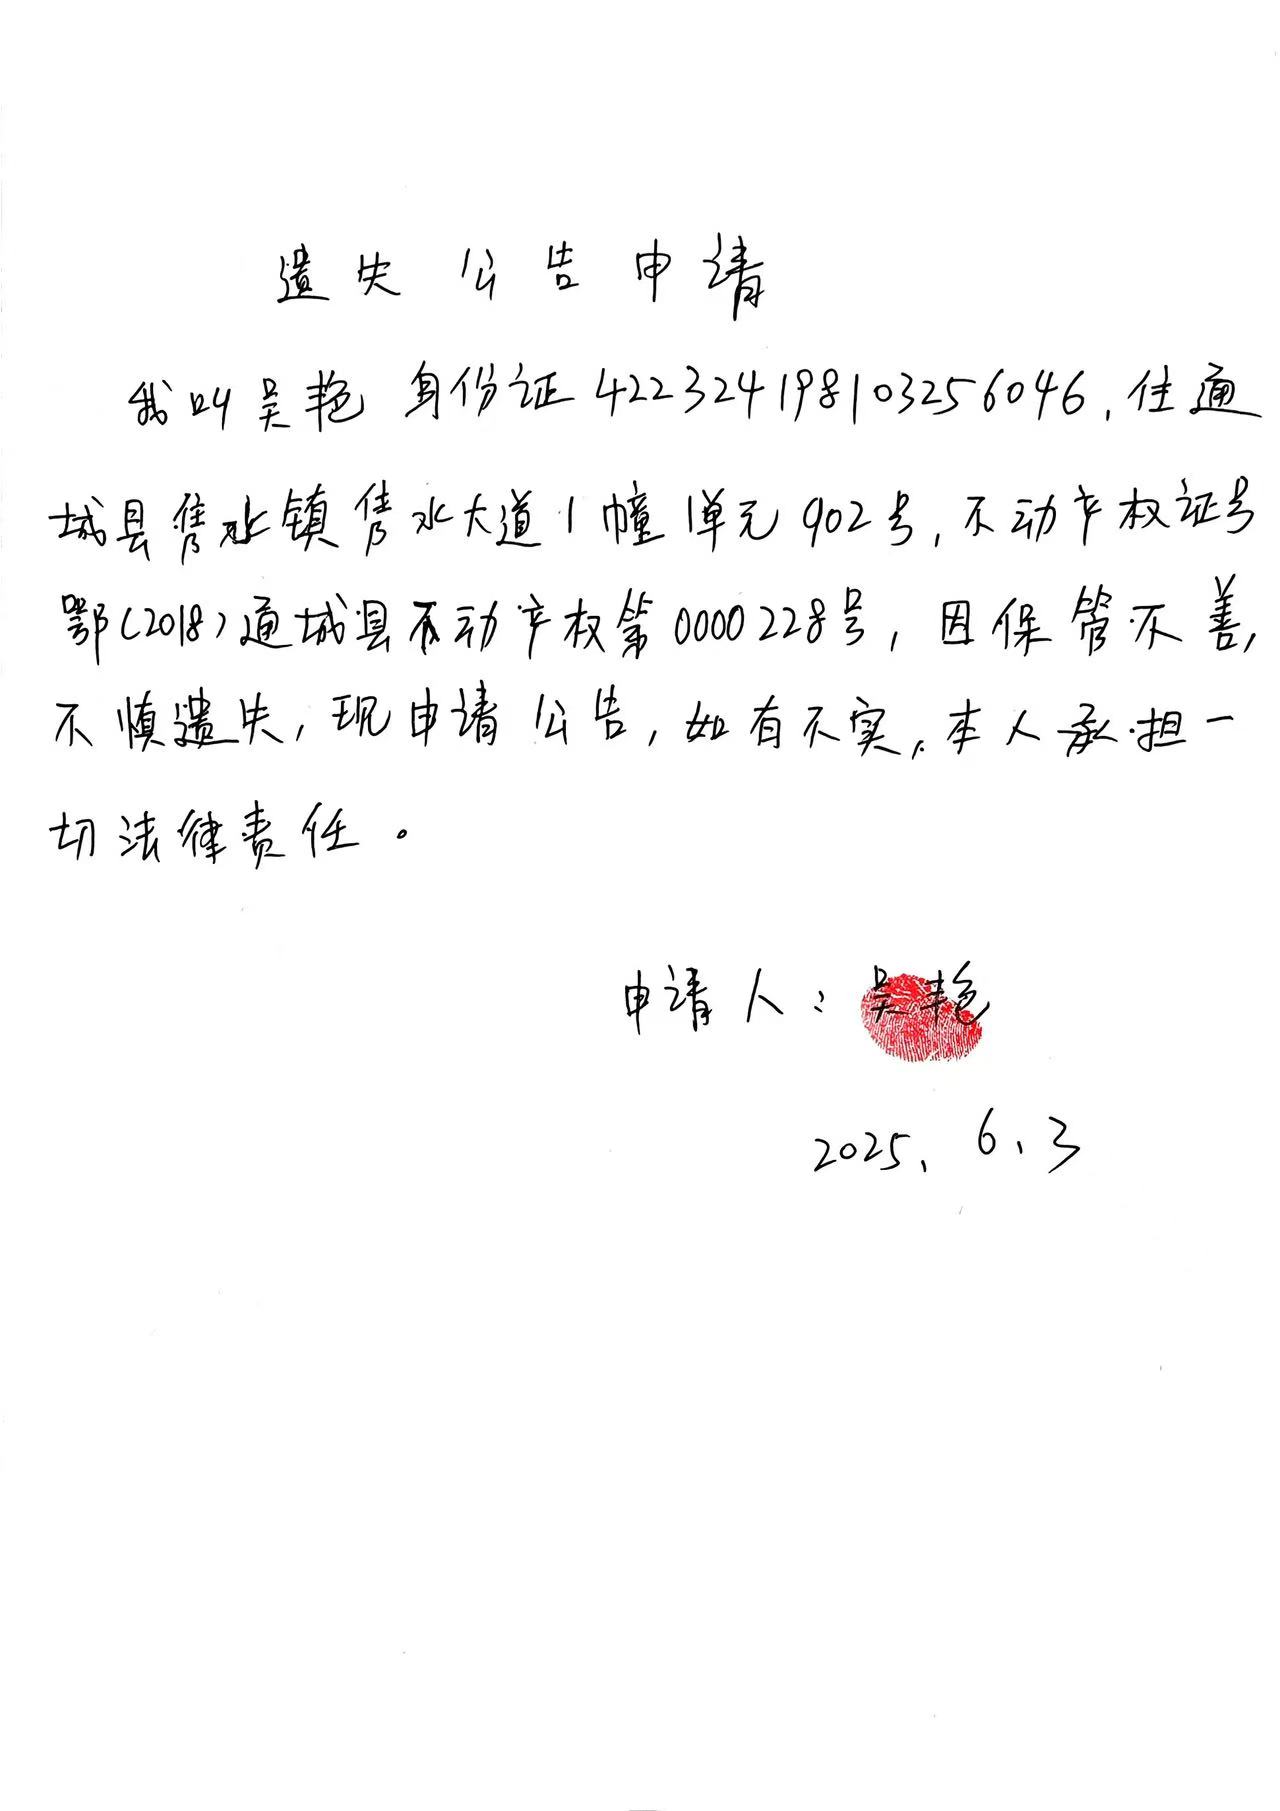 遗失公告申请
我叫吴艳 身份证422324198103256046,住通
城县隽水镇隽水大道1幢1单元902号,不动产权证号
鄂(2018)通城县不动产权第0000228号,因保管不善,
不慎遗失,现申请公告,如有不实,本人承担一
切法律责任。
申请人:吴艳
2025.6.3